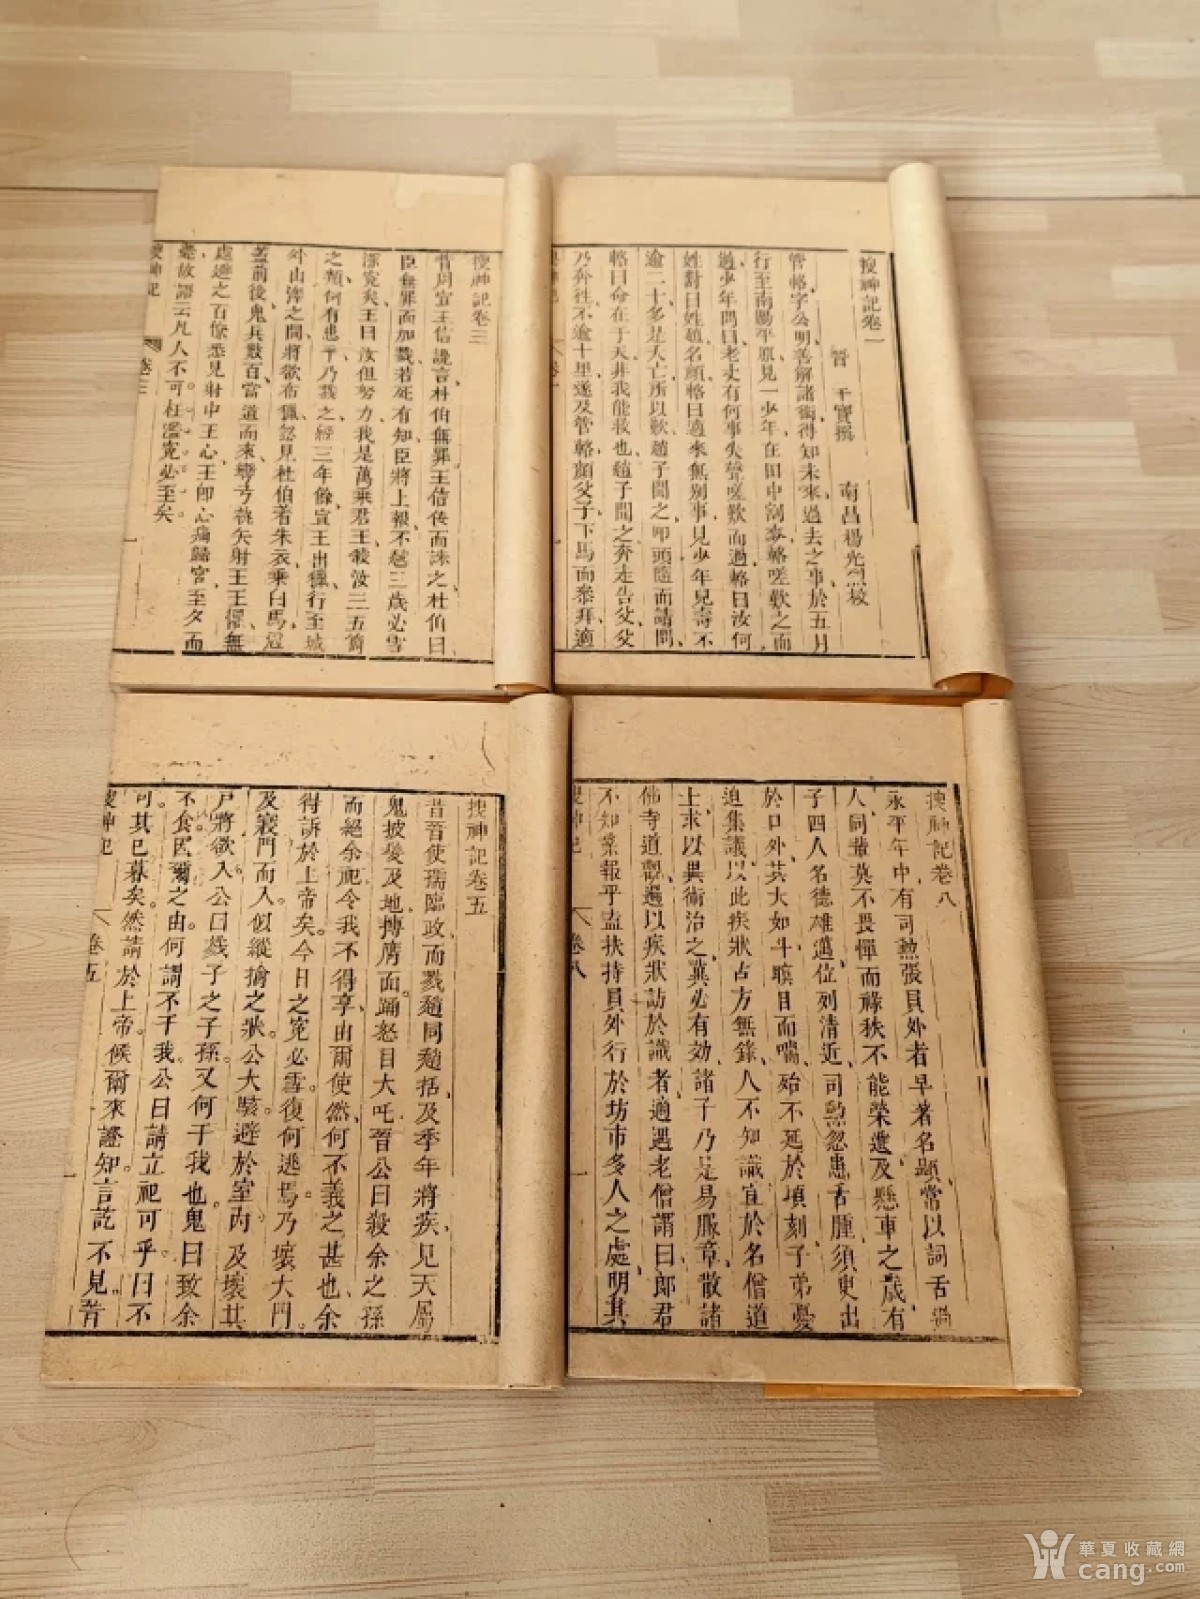 搜神記卷一
晉 干寶撰 南昌楊光烈校
管輅字公明善解諸術得知未來過去之事於五月
行至南陽平原見一少年在田中割麥輅嗟歎之而
過少年問曰老丈有何事失聲嗟歎而過輅曰汝何
姓對曰姓趙名顏輅曰適來無别事見少年見壽不
逾二十多是夭亡所以歎趙子聞之叩頭隨而請問
輅曰命在于天非我能救也趙子聞之奔走告父父
乃奔往不逾十里遂及管輅顏父子下馬而叅拜適
搜神記 卷一 一
搜神記卷三
昔周宣王信讒言杜伯無罪王信佞而誅之杜伯曰
臣無罪而加戮若死有知臣將上報不過三歲必雪
深寃矣王曰汝但努力我是萬乘君王殺汝三五箇
之類何有患乎乃戮之經三年餘宣王出獵行至城
外山澤之間將欲布獵忽見杜伯着朱衣乘白馬冠
蓋前後鬼兵數百當道而來彎弓執矢射王王懼無
處避之百僚悉見射中王心王即心痛歸宮至夕而
薨故語云凡人不可枉濫寃必至矣。
搜神記 卷三 一
搜神記卷八
永平年中有司勲張員外者早著名題常以詞舌過
人同輩莫不畏憚而祿秩不能榮進及懸車之歲有
子四人名德雄邁位列清近司勲忽患舌腫須臾出
於口外其大如斗瞋目而喘殆不延於頃刻子弟憂
迫集議以此疾狀占方無錄人不知識宜於名僧道
上求以異術治之冀必有効諸子乃足易服章散諸
佛寺道觀遍以疾狀訪於識者適遇老僧謂曰郎君
不知業報乎盍扶持員外行於坊市多人之處明其
搜神記 卷八 一
搜神記卷五
昔晉使孺臨政而戮趙同趙括及季年將疾見天厲
鬼披髮及地搏膺而踊怒目大吒晉公曰殺余之孫
而絕余祀令我不得享由爾使然何不義之甚也余
得訴於上帝矣今日之寃必雪復何逃焉乃壞大門。
及寢門而入似縱擒之狀公大駭避於室內及壞其
戶將欲入公曰戮子之子孫又何干我也鬼曰致余
不食因爾之由何謂不干我公曰請立祀可乎曰不
可其已暮矣然請於上帝候爾來證知言訖不見晉
搜神記 卷五 一
華夏收藏網
cang.com